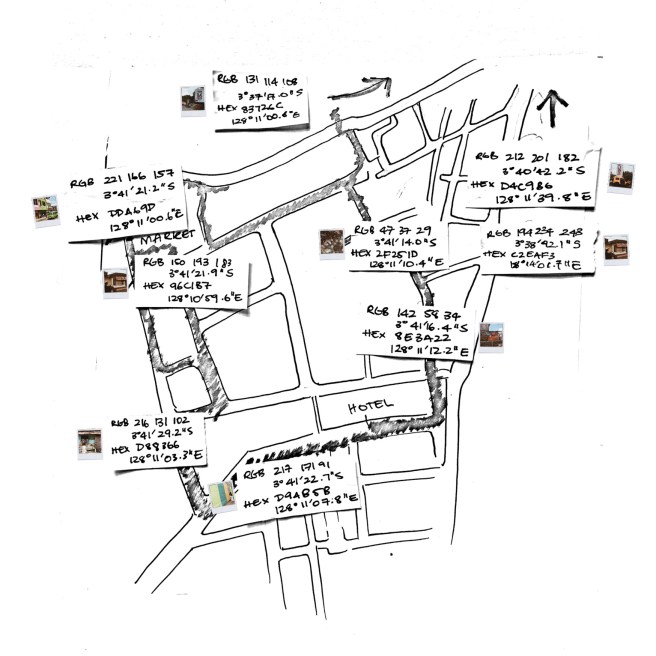 RGB 131 114 108
3°37'17.0"S
HEX 83726C
128°11'00.6"E
RGB 221 166 157
3°41'21.2"S
HEX DDA69D
128°11'00.6"E
MARKET
RGB 212 201 182
3°40'42.2"S
HEX D4C9B6
128°11'39.8"E
RGB 47 37 29
3°41'14.0"S
HEX 2F251D
128°11'10.4"E
RGB 194 234 243
3°38'42.1"S
HEX C2EAF3
RGB 150 193 183
3°41'21.9"S
HEX 96C1B7
128°10'59.6"E
RGB 142 58 34
3°41'16.4"S
HEX 8E3A22
128°11'12.2"E
HOTEL
RGB 216 131 102
3°41'29.2"S
HEX D88366
128°11'03.3"E
RGB 217 171 91
3°41'22.7"S
HEX D9AB5B
128°11'07.8"E